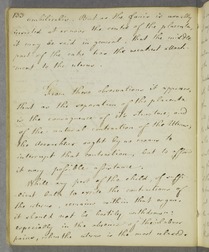 umbilicalis. But as the Funis is usually
inserted at or near the centre of the placenta,
it may be said in general, that the middle
part of the cake has the weakest attach
ment to the uterus.
From these observations it appears,
that as the separation of the placenta
is the consequence of its structure, and
of the natural contraction of the Uterus,
the Accoucheur ought by no means to
interrupt that contraction, but to afford
it every possible assistance.
While any part of the child, of suffi
cient bulk to excite the contractions of
the uterus, remains within that organ,
it should not be hastily withdrawn;
especially in the absence of
pains, when the uterus is the most